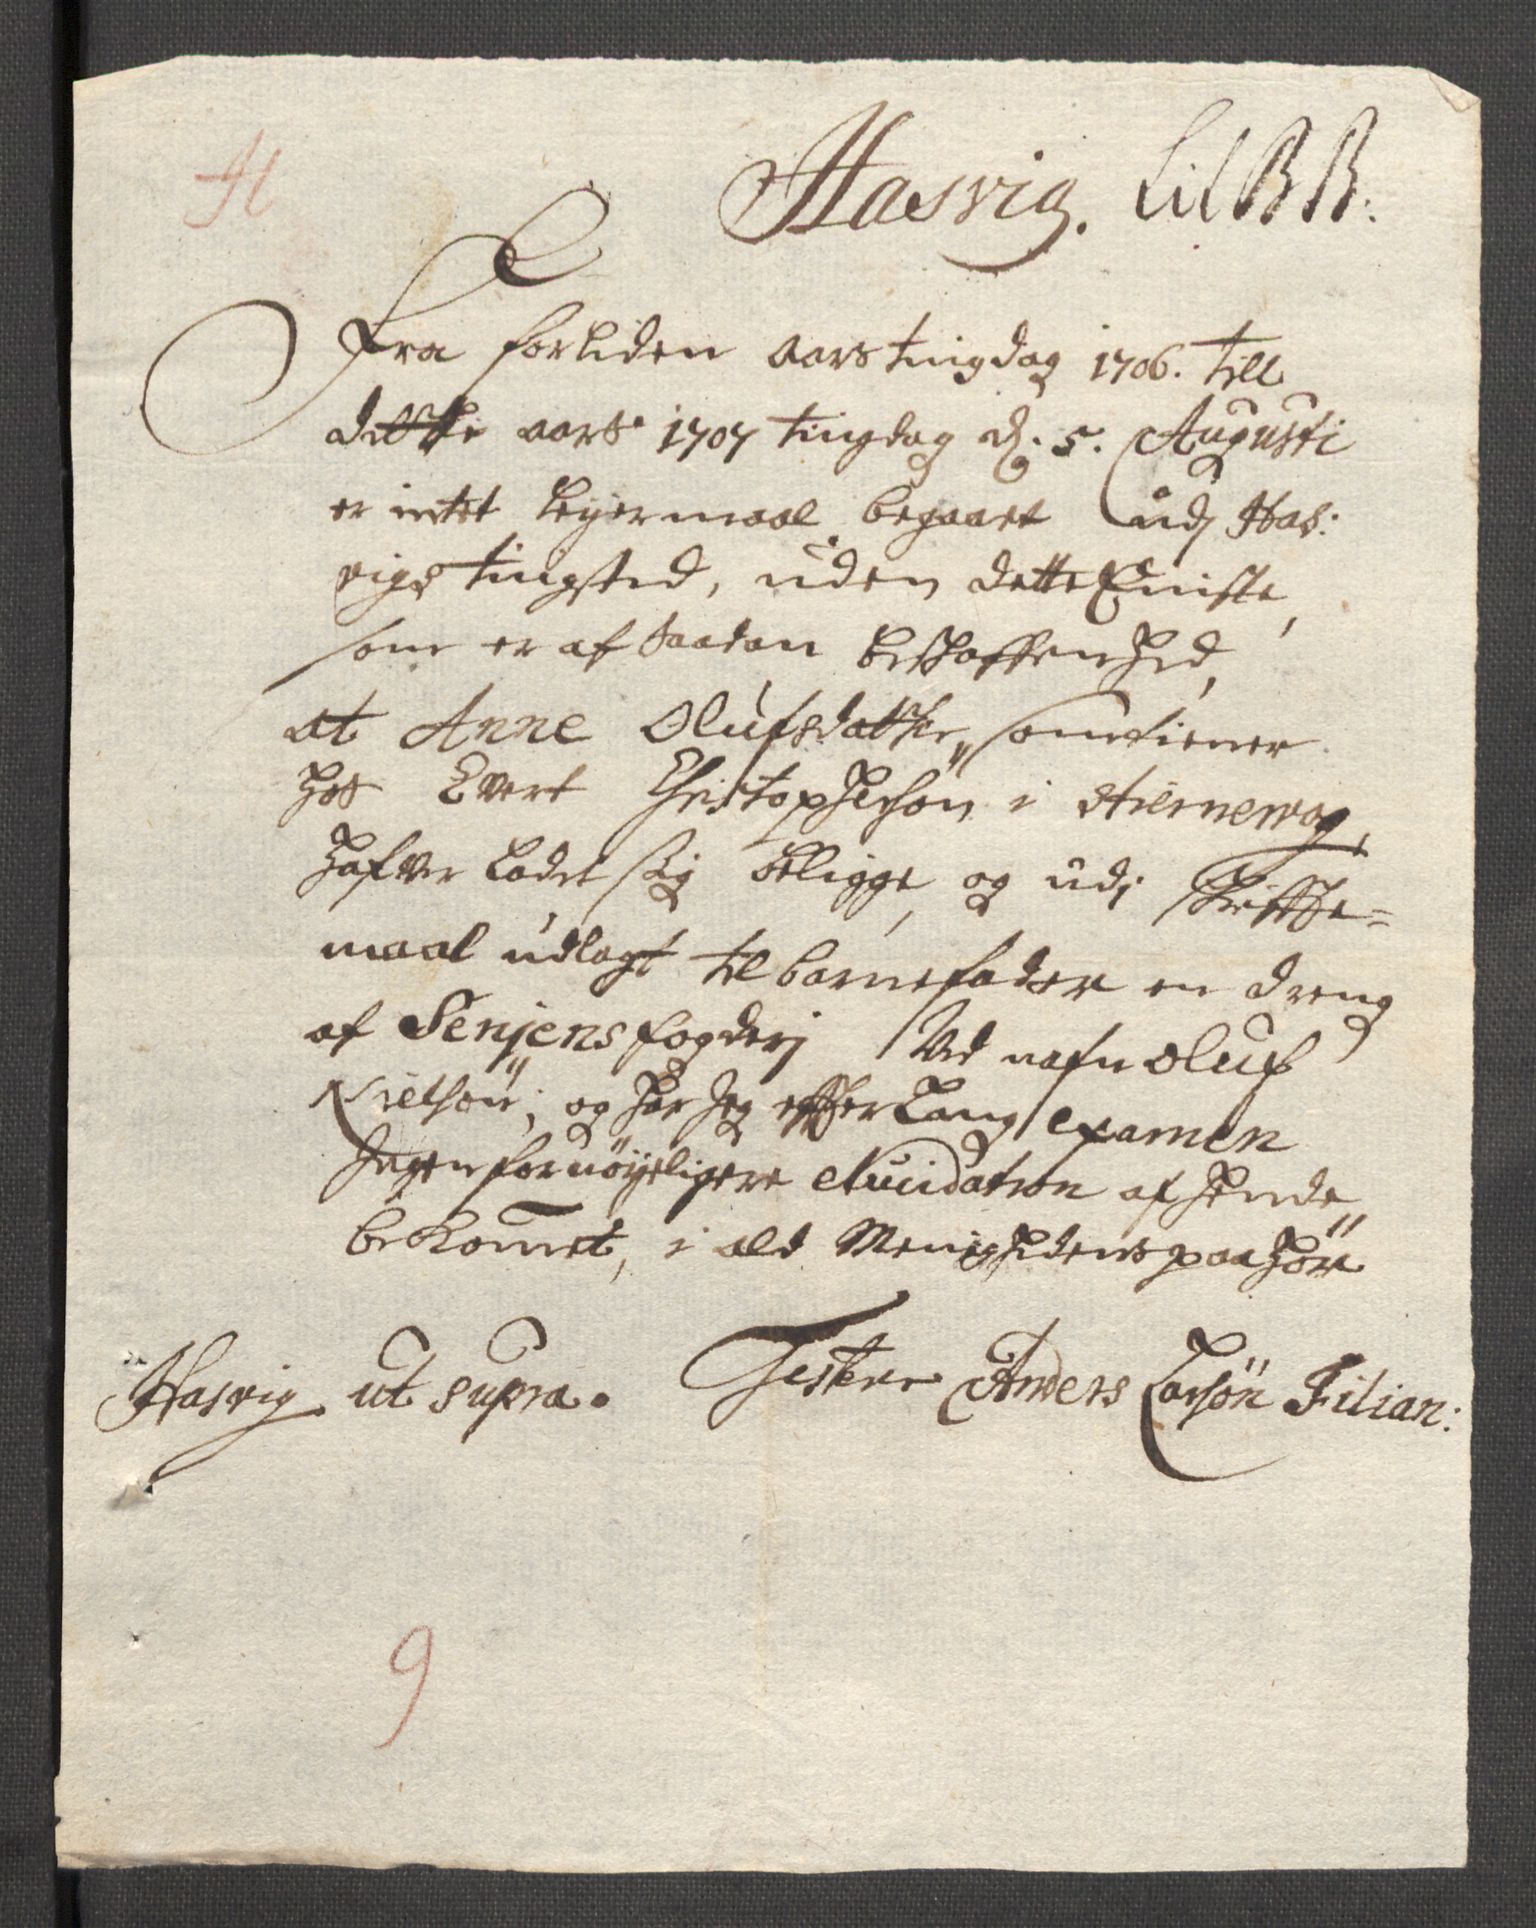 H
Hasvig. Lit BB:
Fra forliden aars tingdag 1706. till
dette aars 1707 tingdag d: 5. Augusti
er intet leyermaal begaaet udj Has:
vigs tingsted, uden dette Eniste,
som er af saadan beskaffenhed,
at Anne Olufsdatter, som tiener
hos Evert Christophersøn i
hafver ladet sig beligge, og udj skrifte=
maal udlagt til barnefader en dreng
af Senjens fogderj Ved nafn Oluf
Nielsøn, og har Jeg efter lang examen
Ingen fornøyeligere elucidation af hende
bekommet, i ald Menighedens paahør
Hasvig ut supra. Testerer Anders Larsøn Filian:
9